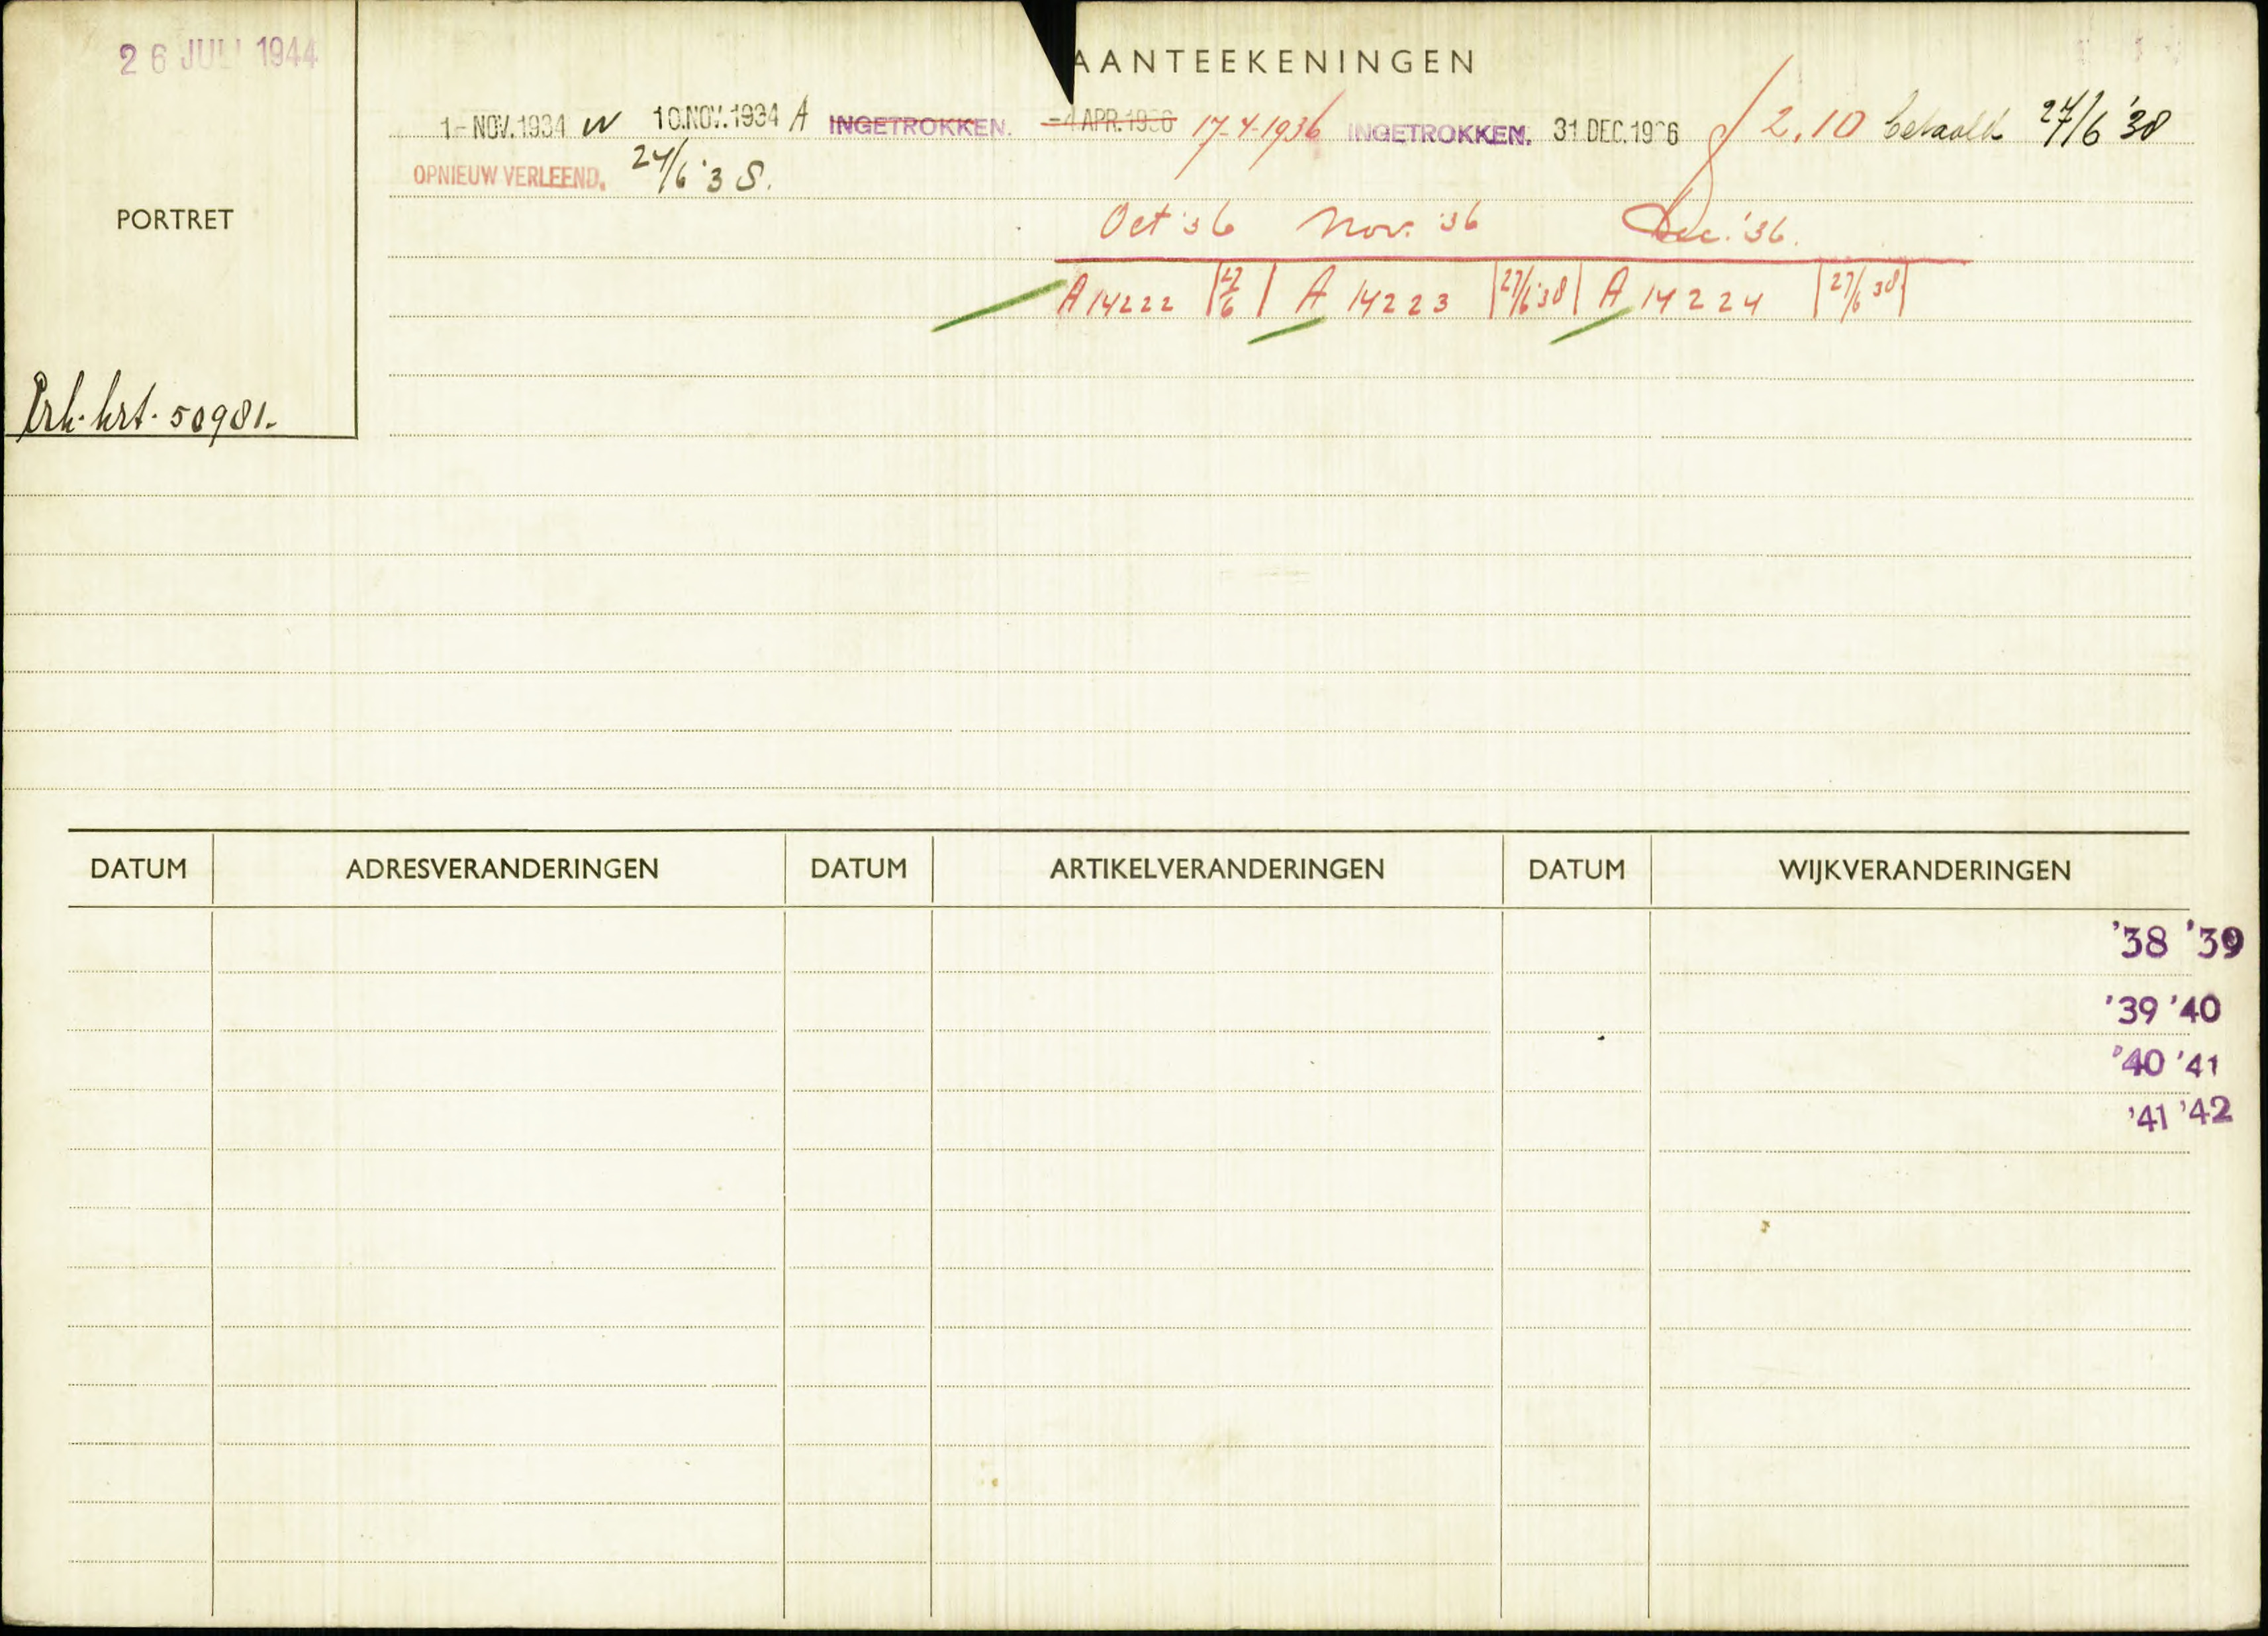 26 JULI 1944
AANTEEKENINGEN
1- NOV. 1934 W 10. NOV. 1934 A INGETROKKEN. -4 APR. 1936 17-4-1936 INGETROKKEN. 31 DEC. 1936 f 2.10 betaald 27/6 '38
OPNIEUW VERLEEND. 27/6 '38.
PORTRET
Oct '36 Nov. '36 Dec. '36.
A 14222 | 27/6 | A 14223 | 27/6 '38 | A 14224 | 27/6 38 |
Prk. krt. 50981.
DATUM ADRESVERANDERINGEN DATUM ARTIKELVERANDERINGEN DATUM WIJKVERANDERINGEN
'38 '39
'39 '40
'40 '41
'41 '42